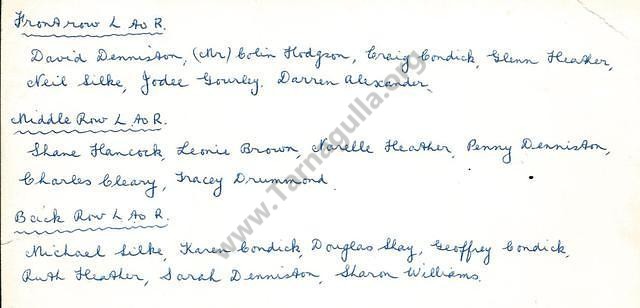 Front row L to R.
David Denniston, (Mr) Colin Hodgson, Craig Condick, Glenn Heather,
Neil Silke, Jodee Gourley. Darren Alexander.
Middle Row L to R.
Shane Hancock, Leonie Brown, Narelle Heather, Penny Denniston,
Charles Cleary, Tracey Drummond.
Back Row L to R.
Michael Silke, Karen Condick, Douglas Shay, Geoffrey Condick,
Ruth Heather, Sarah Denniston, Sharon Williams.
www.Tarnagulla.org